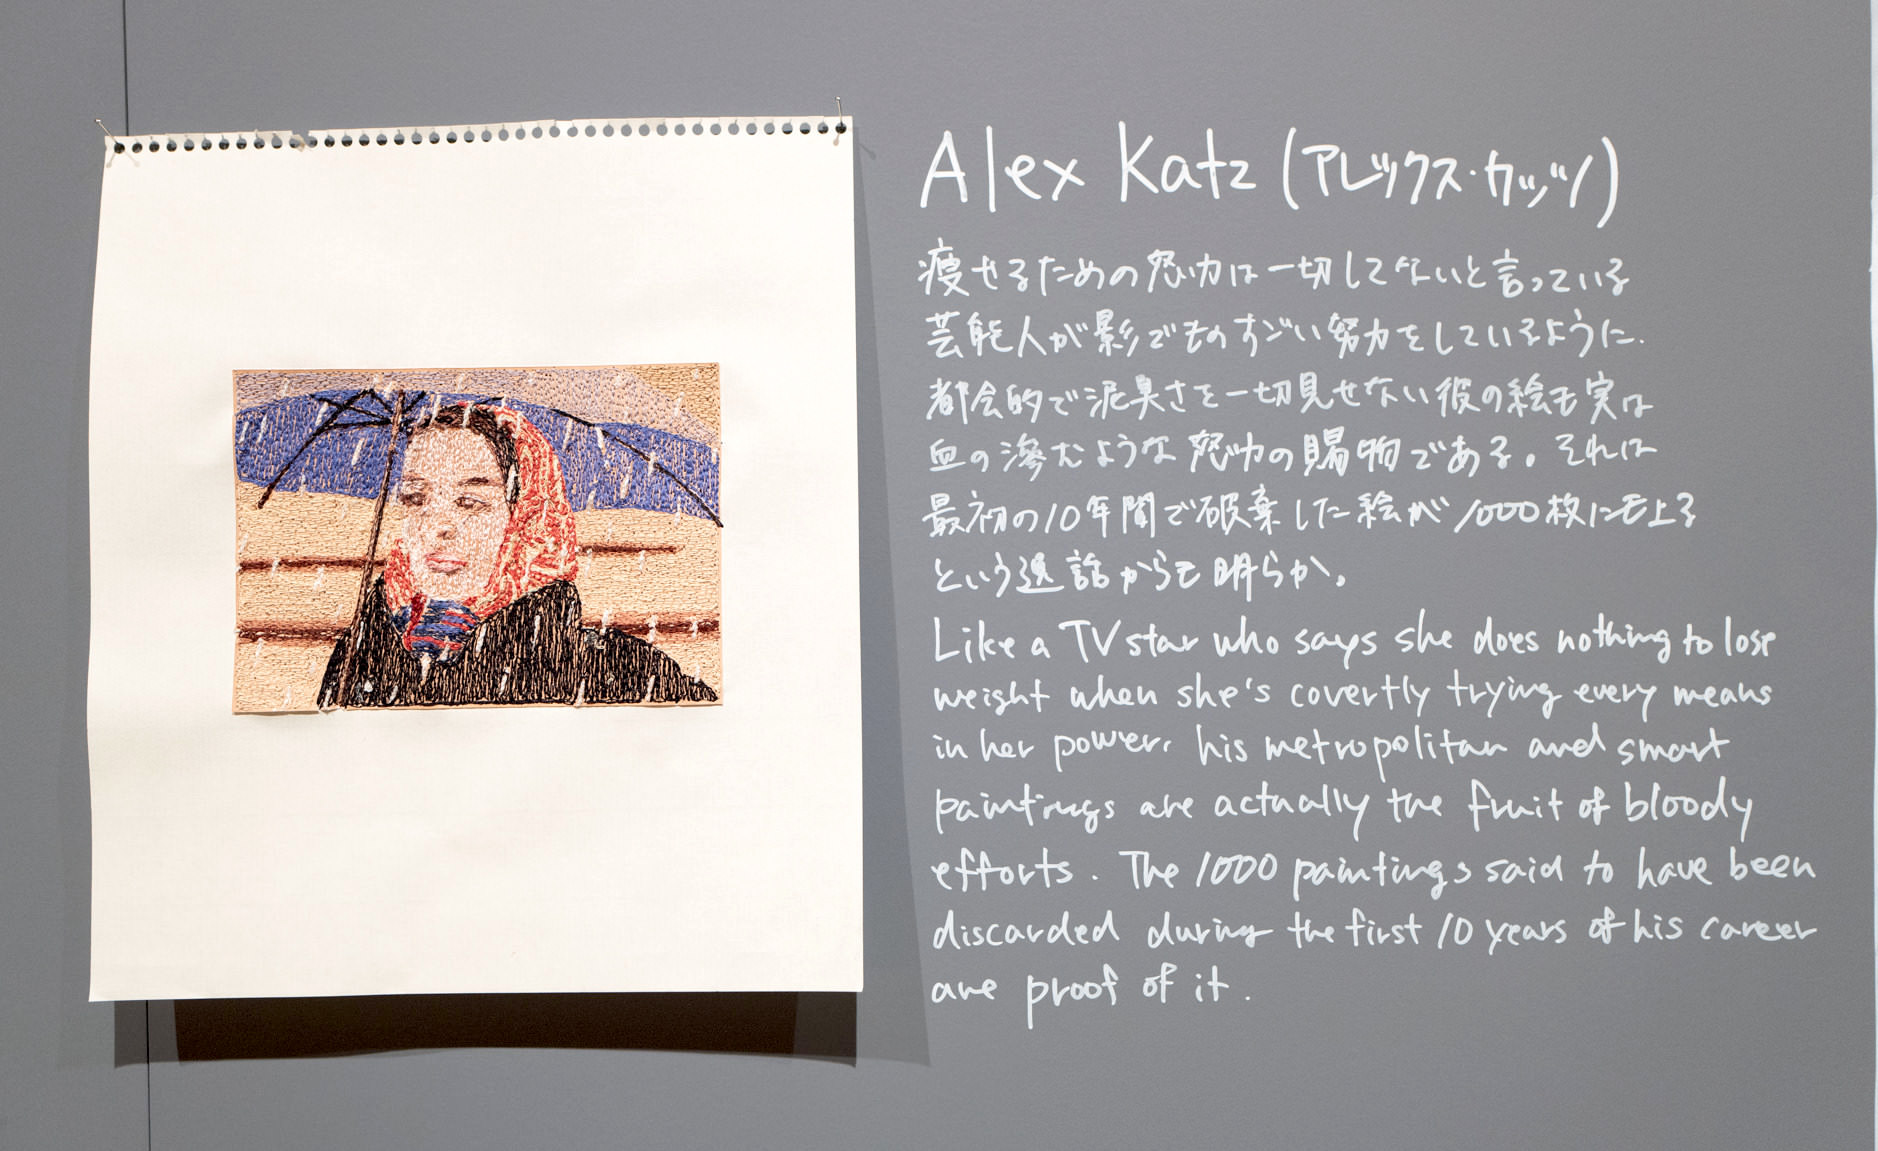 Alex Katz (アレックス・カッツ)
痩せるための努力は一切してないと言っている
芸能人が影でものすごい努力をしているように、
都会的で泥臭さを一切見せない彼の絵も実は
血の滲むような努力の賜物である。それは
最初の10年間で破棄した絵が1000枚にも上る
という逸話からも明らか。
Like a TV star who says she does nothing to lose
weight when she's covertly trying every means
in her power, his metropolitan and smart
paintings are actually the fruit of bloody
efforts. The 1000 paintings said to have been
discarded during the first 10 years of his career
are proof of it.